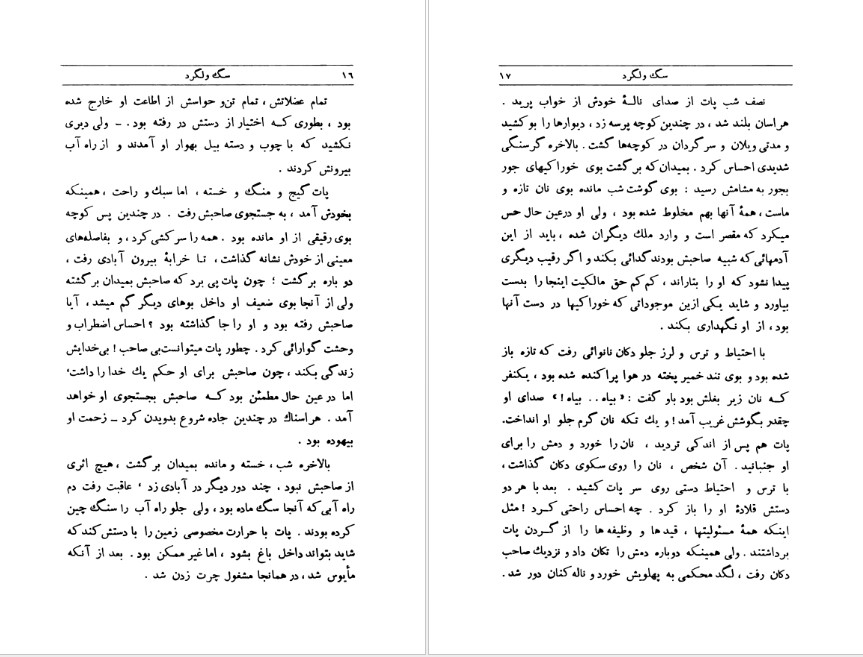 ۱٦ سگ ولگرد
تمام عضلاتش ، تمام تن‌و حواسش از اطاعت او خارج شده
بود ، بطوری کــه اختیار از دستش در رفته بود . ــ ولی دیری
نکشید که با چوب و دسته بیل بهوار او آمدند و از راه آب
بیرونش کردند .
پات گیج و منگ و خسته ، اما سبك و راحت ، همینکه
بخودش آمد ، به جستجوی صاحبش رفت . در چندین پس کوچه
بوی رقیقی از او مانده بود . همه را سر کشی کرد ، و بفاصله‌های
معینی از خودش نشانه گذاشت ، تــا خرابهٔ بیرون آبادی رفت ،
دو باره برگشت ؛ چون پات پی برد که صاحبش بمیدان برگشته
ولی از آنجا بوی ضعیف او داخل بوهای دیگر گم میشد ، آیا
صاحبش رفته بود و او را جا گذاشته بود ؟ احساس اضطراب و
وحشت گوارائی کرد . چطور پات میتوانست‌بی صاحب ! بی‌خدایش
زندگی بکند ، چون صاحبش برای او حکم یك خدا را داشت ،
اما در عین حال مطمئن بود کــه صاحبش بجستجوی او خواهد
آمد . هراسناك در چندین جاده شروع بدویدن کرد ــ زحمت او
بیهوده بود .
بالاخره شب ، خسته و مانده بمیدان بر گشت ، هیچ اثری
از صاحبش نبود . چند دور دیگر در آبادی زد ، عاقبت رفت دم
راه آبی‌که آنجا سگ ماده بود ، ولی جلو راه آب را سنگ چین
کرده بودند . پات با حرارت مخصوصی زمین را با دستش کند که
شاید بتواند داخل باغ بشود ، اما غیر ممکن بود . بعد از آنکه
مأیوس شد ، در همانجا مشغول چرت زدن شد .
سگ ولگرد ۱۷
نصف شب پات از صدای نالهٔ خودش از خواب پرید .
هراسان بلند شد ، در چندین کوچه پرسه زد ، دیوارها را بو کشید
و مدتی ویلان و سر گردان در کوچه‌ها گشت . بالاخره گرسنگی
شدیدی احساس کرد . بمیدان که بر گشت بوی خوراکیهای جور
بجور به مشامش رسید : بوی گوشت شب مانده بوی نان تازه و
ماست ، همهٔ آنها بهم مخلوط شده بود ، ولی او درعین حال حس
میکرد که مقصر است و وارد ملك دیگران شده ، باید از این
آدمهائی که شبیه صاحبش بودند گدائی بکند و اگر رقیب دیگری
پیدا نشود که او را بتاراند ، کم‌کم حق مالکیت اینجا را بدست
بیاورد و شاید یکی ازین موجوداتی که خوراکیها در دست آنها
بود ، از او نگهداری بکند .
با احتیاط و ترس و لرز جلو دکان نانوائی رفت که تازه باز
شده بود و بوی تند خمیر پخته در هوا پراکنده شده بود ، یکنفر
کــه نان زیر بغلش بود باو گفت : «بیاه . . بیاه !» صدای او
چقدر بگوشش غریب آمد ! و یك تکه نان گرم جلو او انداخت.
پات هم پس از اندکی تردید ، نان را خورد و دمش را برای
او جنبانید . آن شخص ، نان را روی سکوی دکان گذاشت ،
با ترس و احتیاط دستی روی سر پات کشید . بعد با هر دو
دستش قلادهٔ او را باز کرد . چه احساس راحتی کـرد ! مثل
اینکه همهٔ مسئولیتها ، قیدها و وظیفه‌ها را از گردن پات
برداشتند . ولی همینکه دوباره دمش را تکان داد و نزدیك صاحب
دکان رفت ، لگد محکمی به پهلویش خورد و ناله کنان دور شد .